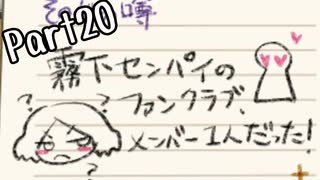 Part20
霧下センパイの
ファンクラブ、
メンバー1人だった!
? ?
? ?